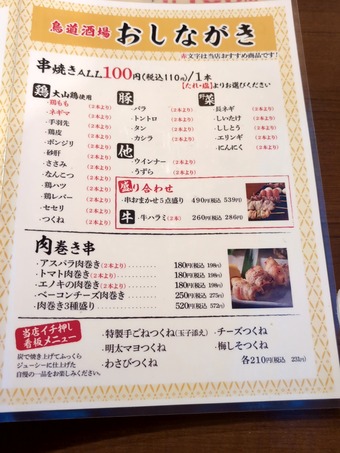 鳥道酒場 おしながき
赤文字は当店おすすめ商品です!
串焼きALL100円(税込110円)/1本
【たれ・塩】よりお選びください
鶏 大山鶏使用
・鶏もも (2本より)
・ネギマ (2本より)
・手羽先 (2本より)
・鶏皮 (2本より)
・ボンジリ (2本より)
・砂肝 (2本より)
・ささみ (2本より)
・なんこつ (2本より)
・鶏ハツ (2本より)
・鶏レバー (2本より)
・セセリ (2本より)
・つくね (2本より)
豚
・バラ (2本より)
・トントロ (2本より)
・タン (2本より)
・カシラ (2本より)
他
・ウインナー (2本より)
・うずら (2本より)
野菜
・長ネギ (2本より)
・しいたけ (2本より)
・ししとう (2本より)
・エリンギ (2本より)
・にんにく (2本より)
盛り合わせ
・串おまかせ5点盛り 490円(税込 539円)
牛 ・牛ハラミ(2本より) 260円(税込 286円)
肉巻き串
・アスパラ肉巻き(2本より) 180円(税込 198円)
・トマト肉巻き(2本より) 180円(税込 198円)
・エノキの肉巻き(2本より) 180円(税込 198円)
・ベーコンチーズ肉巻き 250円(税込 275円)
・肉巻き3種盛り 520円(税込 572円)
当店イチ押し
看板メニュー
炭で焼き上げてふっくら
ジューシーに仕上げた
自慢の一品をお楽しみください。
・特製手ごねつくね(玉子添え)
・明太マヨつくね
・わさびつくね
・チーズつくね
・梅しそつくね
各210円(税込 231円)